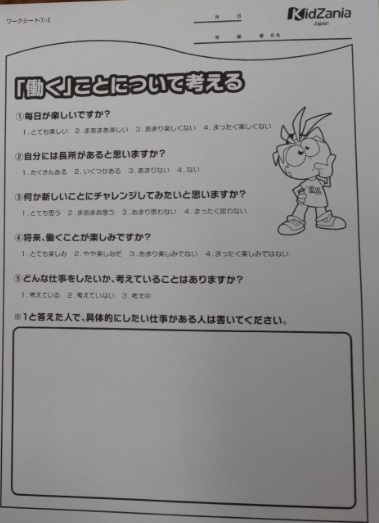 ワークシート①-2
月 日
KidZania
Japan
年 組 番 氏名
「働く」ことについて考える
①毎日が楽しいですか?
1.とても楽しい 2.まあまあ楽しい 3.あまり楽しくない 4.まったく楽しくない
②自分には長所があると思いますか?
1.たくさんある 2.いくつかある 3.あまりない 4.ない
③何か新しいことにチャレンジしてみたいと思いますか?
1.とても思う 2.まあまあ思う 3.あまり思わない 4.まったく思わない
④将来、働くことが楽しみですか?
1.とても楽しみ 2.やや楽しみだ 3.あまり楽しみでない 4.まったく楽しみではない
⑤どんな仕事をしたいか、考えていることはありますか?
1.考えている 2.考えていない 3.考え中
※1と答えた人で、具体的にしたい仕事がある人は書いてください。